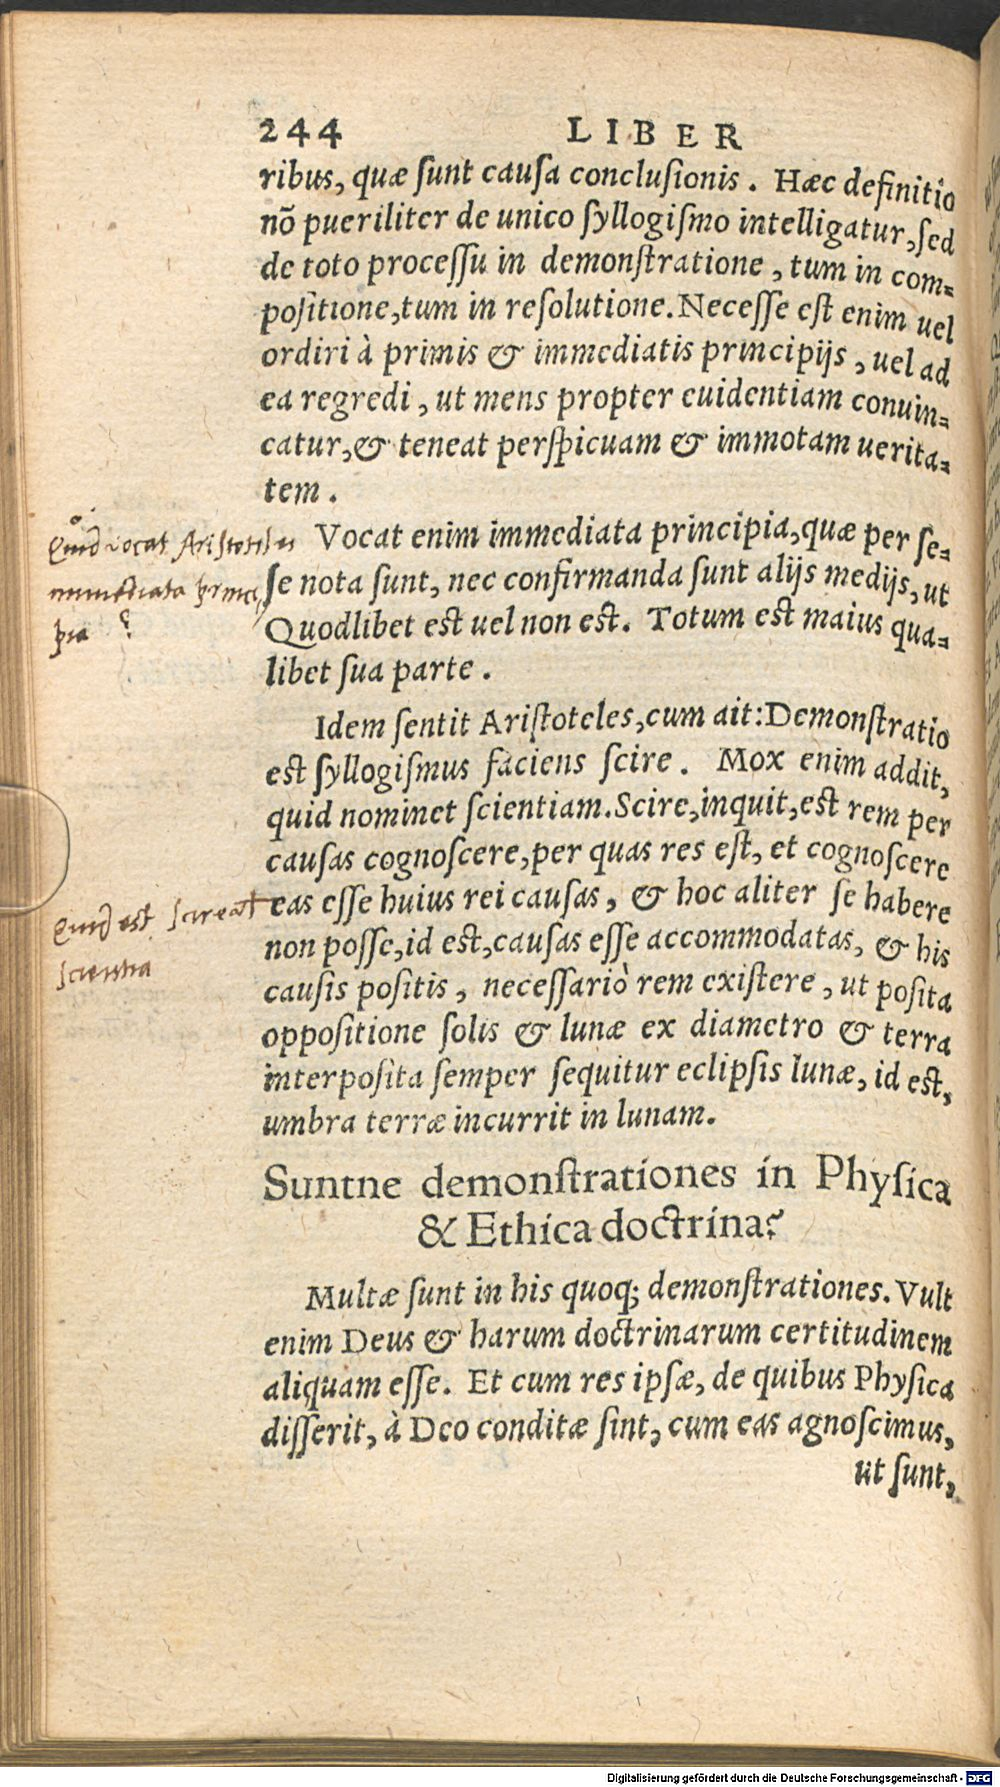 244 LIBER
ribus, quæ ſunt cauſa concluſionis. Hæc definitio
nõ pueriliter de unico ſyllogiſmo intelligatur, ſed
de toto proceſſu in demonſtratione, tum in com-
poſitione, tum in reſolutione. Neceſſe eſt enim uel
ordiri à primis & immediatis principijs, uel ad
ea regredi, ut mens propter euidentiam conuin-
catur, & teneat perſpicuam & immotam uerita-
tem.
Quid vocat Aristoteles
immediata princi
pia?
Vocat enim immediata principia, quæ per ſe-
ſe nota ſunt, nec confirmanda ſunt alijs medijs, ut
Quodlibet eſt uel non eſt. Totum eſt maius qua-
libet ſua parte.
Idem ſentit Ariſtoteles, cum ait: Demonſtratio
eſt ſyllogiſmus faciens ſcire. Mox enim addit,
quid nominet ſcientiam. Scire, inquit, eſt rem per
cauſas cognoſcere, per quas res eſt, et cognoſcere
eas eſſe huius rei cauſas, & hoc aliter ſe habere
non poſſe, id eſt, cauſas eſſe accommodatas, & his
cauſis poſitis, neceſſariò rem exiſtere, ut poſita
oppoſitione ſolis & lunæ ex diametro & terra
interpoſita ſemper ſequitur eclipſis lunæ, id eſt,
umbra terræ incurrit in lunam.
Quid est
scientia
Suntne demonſtrationes in Phyſica
& Ethica doctrina?
Multæ ſunt in his quoq; demonſtrationes. Vult
enim Deus & harum doctrinarum certitudinem
aliquam eſſe. Et cum res ipſæ, de quibus Phyſica
diſſerit, à Deo conditæ ſint, cum eas agnoſcimus,
ut ſunt,
Digitalisierung gefördert durch die Deutsche Forschungsgemeinschaft - DFG